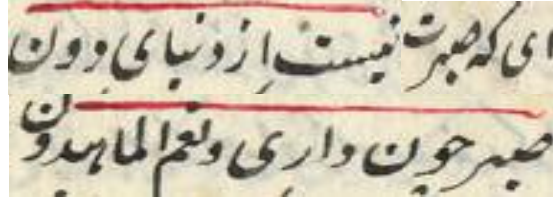 ای که صبرت نیست از دنیای دون
صبر چون داری ز نعم الماهدون